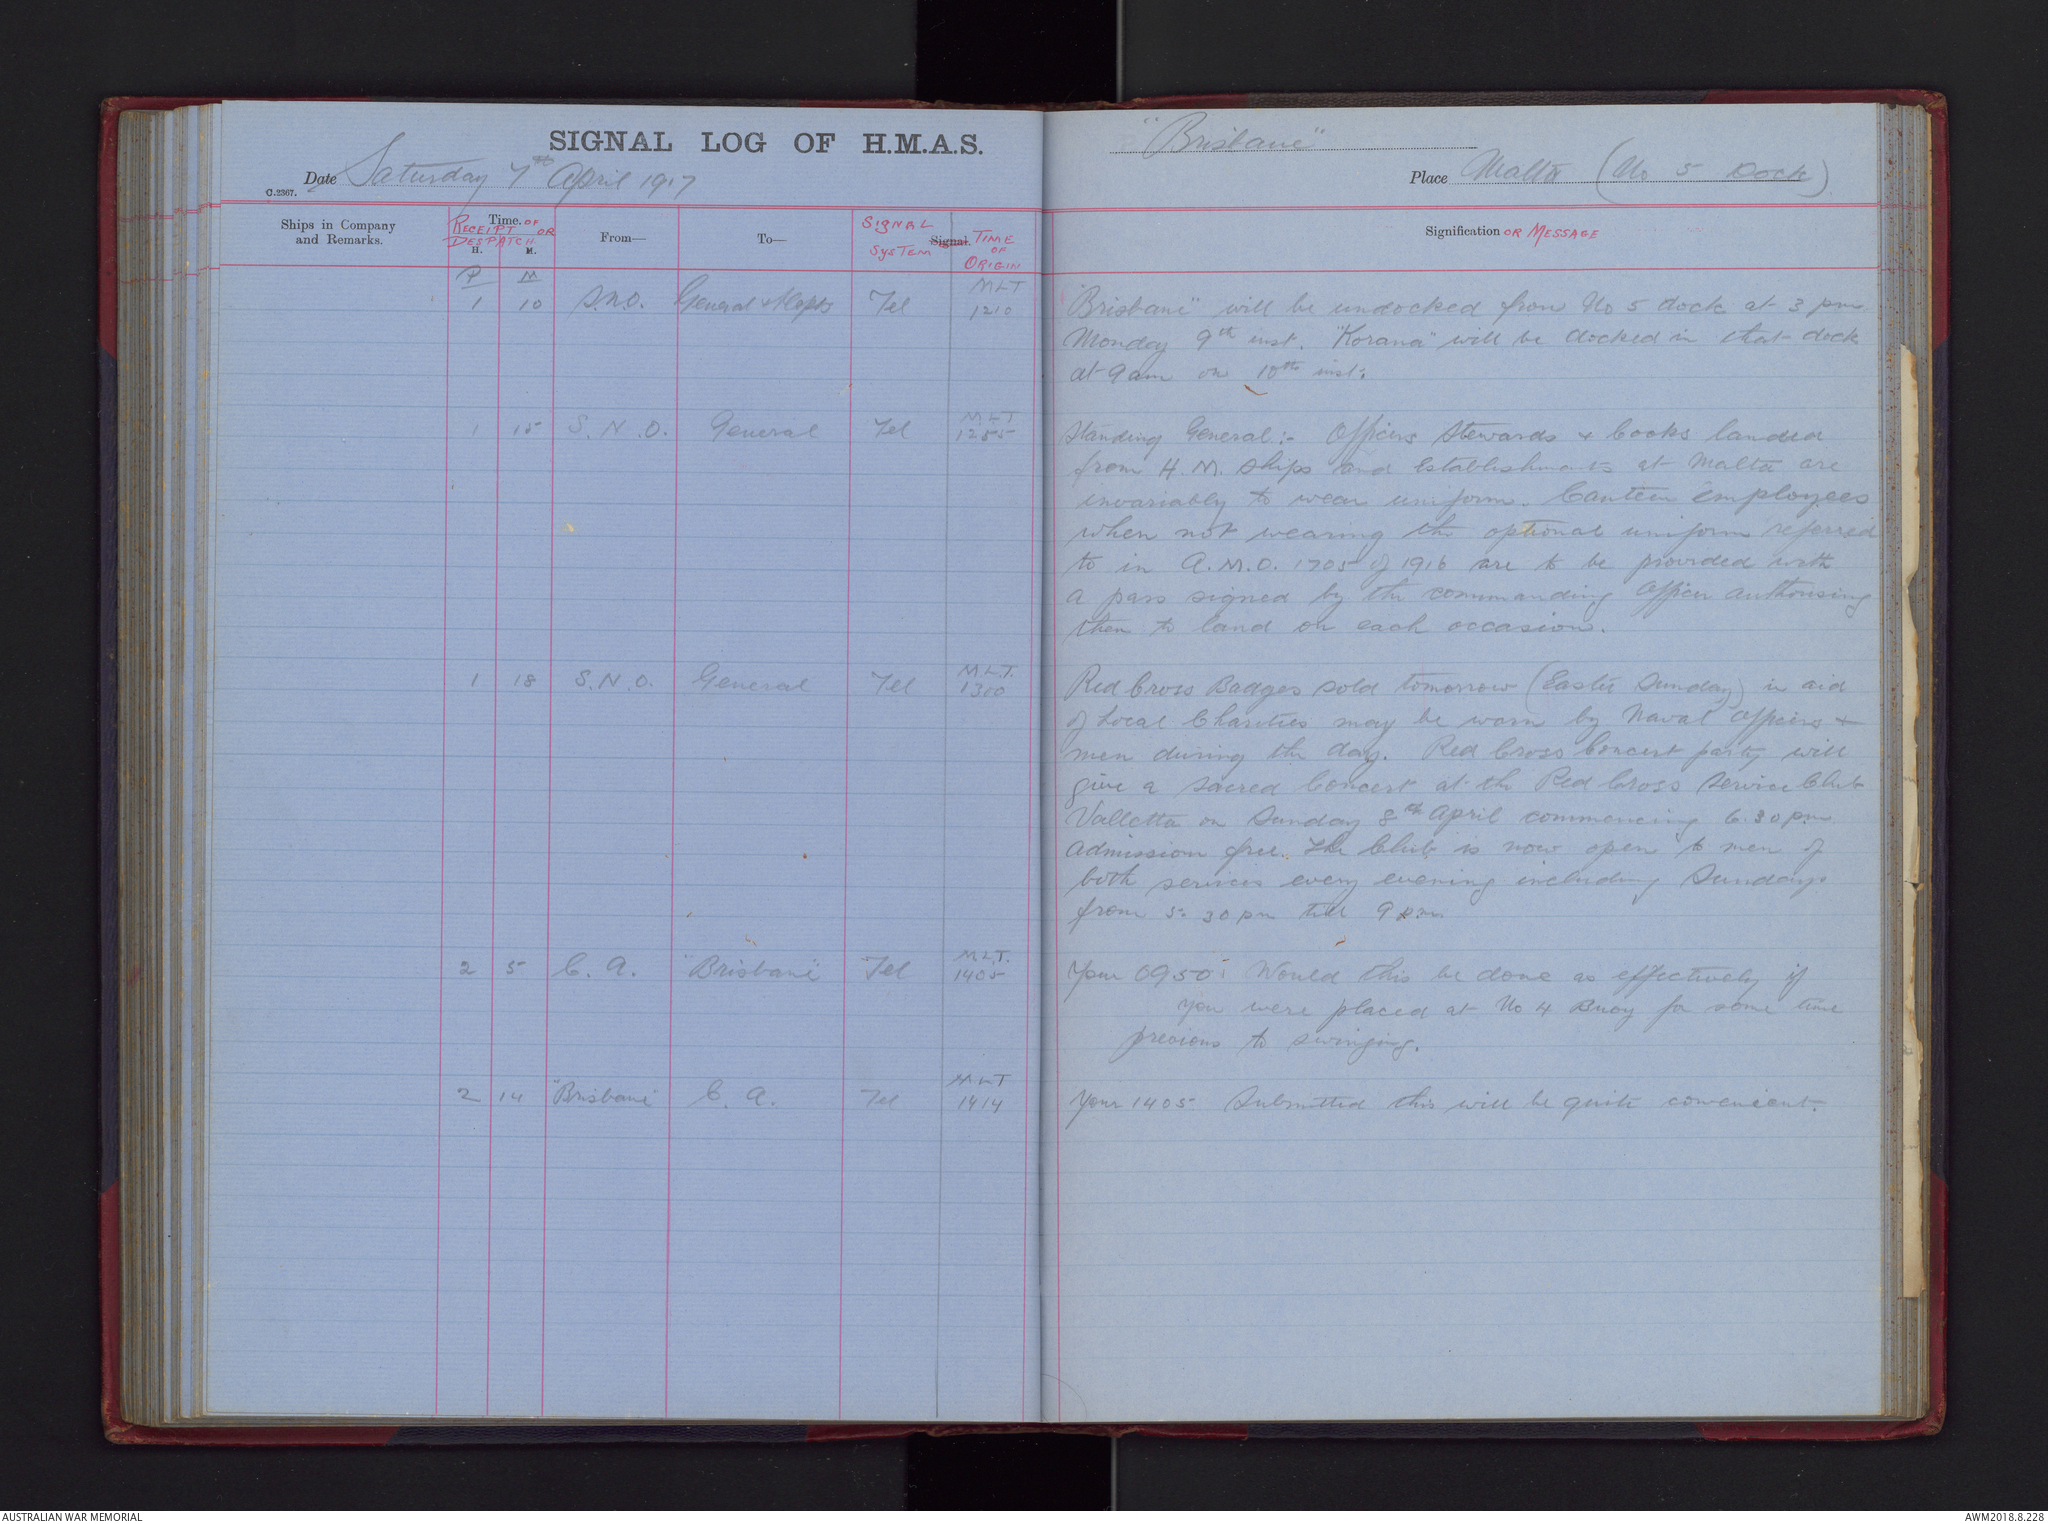 SIGNAL LOG OF H.M.A.S. "Brisbane"
Date Saturday 7th April 1917 Place Malta (No 5 Dock)
C.2367.
Ships in Company and Remarks. Time. OF RECEIPT OR DESPATCH. H. M. From— To— SIGNAL SYSTEM Signal. TIME OF ORIGIN Signification OR MESSAGE
P M MLT
1 10 S.N.O. General & Tel 1210 "Brisbane" will be undocked from No 5 dock at 3 pm
Monday 9th inst. "Korana" will be docked in that dock
at 9am on 10th inst.
1 15 S.N.O. General Tel M.L.T 1255 Standing General:- Officers Stewards & Cooks landed
from H.M. Ships and Establishments at Malta are
invariably to wear uniform. Canteen employees
when not wearing the optional uniform referred
to in A.M.O. 1705 of 1916 are to be provided with
a pass signed by the commanding Officer authorising
them to land on each occasion.
1 18 S.N.O. General Tel M.L.T. 1300 Red Cross Badges sold tomorrow (Easter Sunday) in aid
of Local Charities may be worn by Naval Officers &
men during the day. Red Cross Concert party will
give a sacred Concert at the Red Cross Service Club
Valletta on Sunday 8th April commencing 6.30 pm
Admission free. The Club is now open to men of
both services every evening including Sundays
from 5.30 pm till 9 pm.
2 5 C.A. "Brisbane" Tel M.L.T. 1405 Your 0950: Would this be done as effectively if
you were placed at No 4 Buoy for some time
previous to swinging.
2 14 "Brisbane" C.A. Tel MLT 1414 Your 1405 Submitted this will be quite convenient.
AUSTRALIAN WAR MEMORIAL
AWM2018.8.228